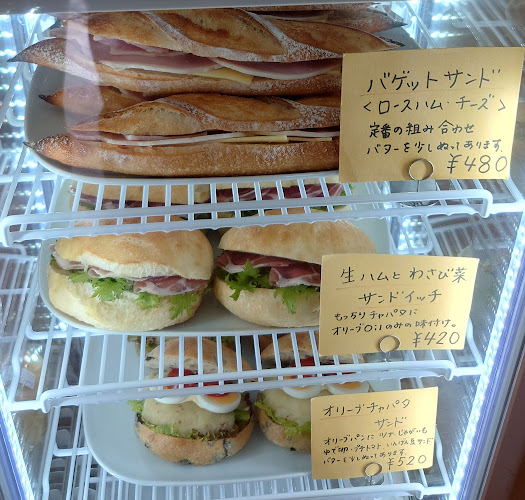 バゲットサンド
＜ロースハム・チーズ＞
定番の組み合わせ
バターを少しぬってあります。
¥480
生ハムとわさび菜
サンドイッチ
もっちりチャバタに
オリーブOilのみの味付け。
¥420
オリーブチャバタ
サンド
オリーブパンに ツナ じゃがいも
ゆで卵・プチトマト いんげん豆サンド
バターを少しぬってあります
¥520